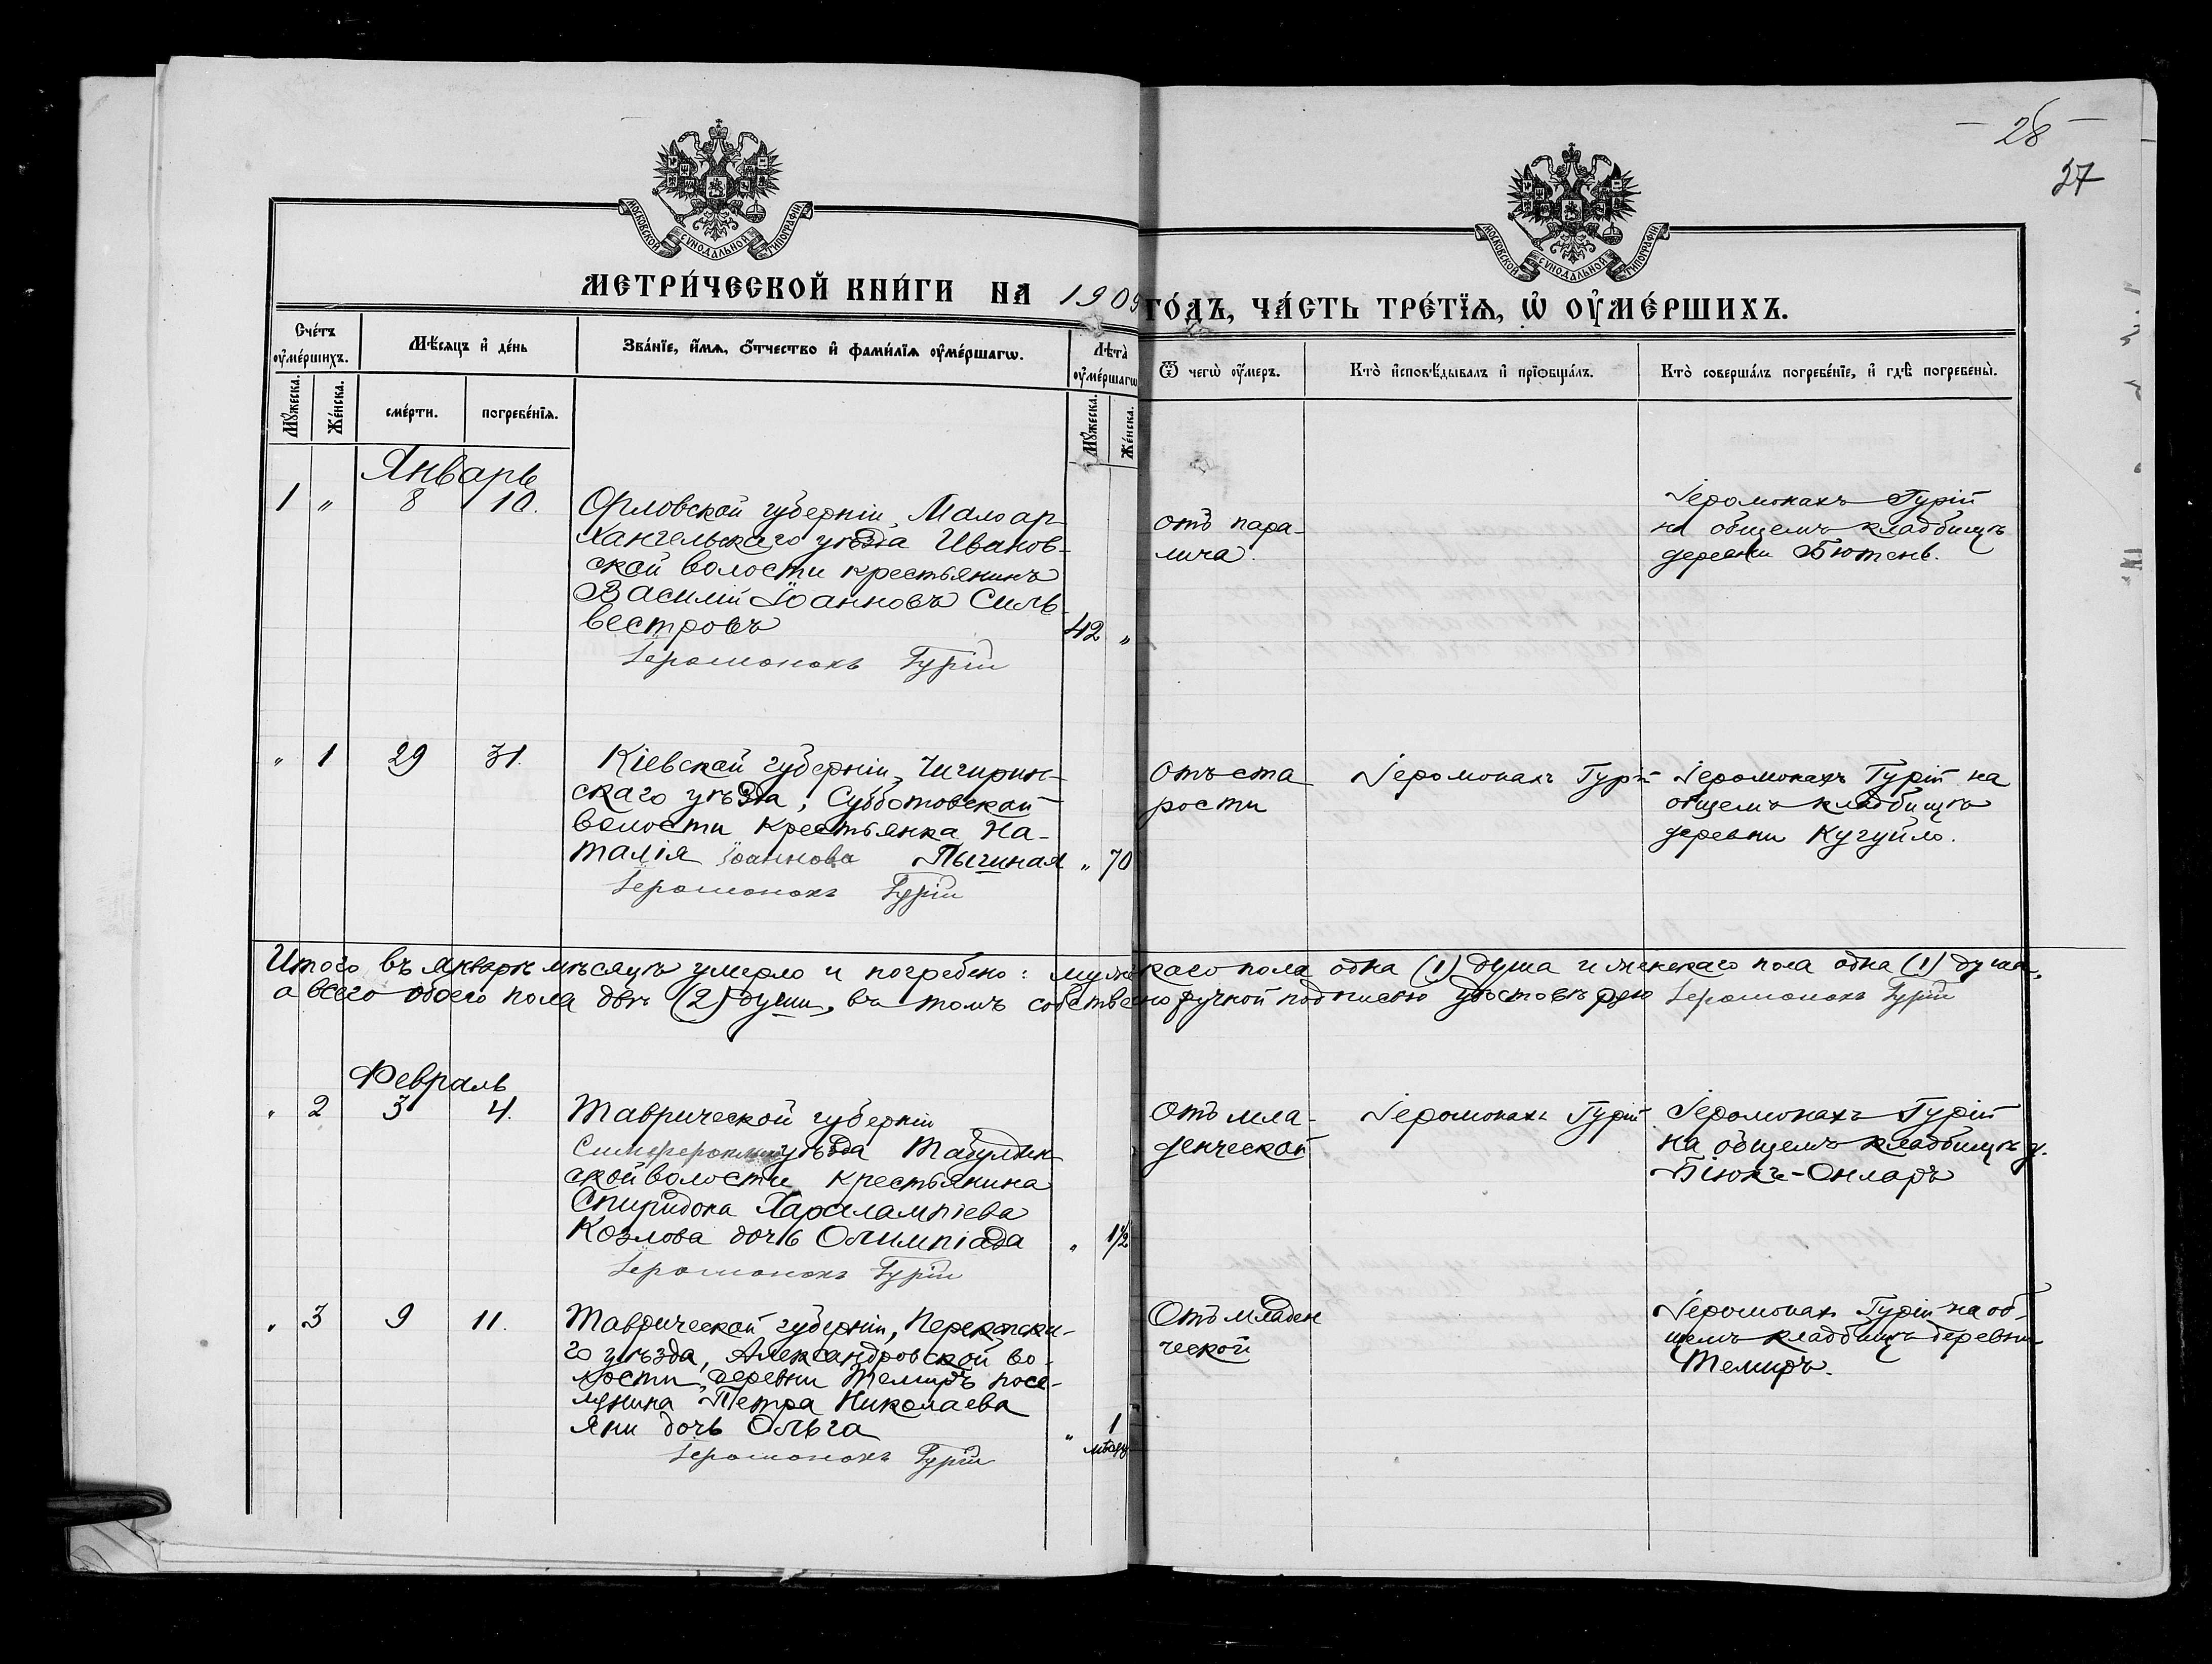 – 28 –
27
МОСКОВСКОЙ СѴНОДАЛЬНОЙ ТИПОГРАФІИ
МОСКОВСКОЙ СѴНОДАЛЬНОЙ ТИПОГРАФІИ
МЕТРИ́ЧЕСКОЙ КНИ́ГИ НА 1909 ГО́ДЪ, ЧА́СТЬ ТРЕ́ТЇѦ, Ѡ҆ ОУ҆МЕ́РШИХЪ.
Счéтъ оу҆мéршихъ.
Мꙋ́жеска.
Же́нска.
Мѣ́сяцъ и҆ де́нь
сме́рти.
погребе́нїѧ.
Зва́нїе, и҆́мѧ, ѻ҆́тчество и҆ фами́лїѧ оу҆ме́ршагѡ.
Лѣ́та оу҆ме́ршагѡ
Мꙋ́жеска.
Же́нска.
Ѿ чегѡ̀ оу҆́меръ.
Кто̀ и҆сповѣ́дывалъ и҆ прїѡбща́лъ.
Кто̀ соверша́лъ погребе́нїе, и҆ гдѣ̀ погребены̀.
Январь
1 " 8 10.
Орловской губерніи, Малоар-
хангельскаго уѣзда Иванов-
ской волости крестьянинъ
Василій Іоанновъ Силь-
вестровъ
42 "
Іеромонахъ Гурій
отъ пара-
лича.
Іеромонахъ Гурій
на общемъ кладбищѣ
деревни Бютень.
" 1 29 31.
Кіевской губерніи, Чигирин-
скаго уѣзда, Субботовской
волости крестьянка На-
талія Іоаннова Пычиная
" 70
Іеромонахъ Гурій
Отъ ста
рости
Іеромонахъ Гурій
Іеромонахъ Гурій на
общемъ кладбищѣ
деревни Кугуйло.
Итого въ январѣ мѣсяцѣ умерло и погребено: мужескаго пола одна (1) душа и женскаго пола одна (1) душа,
а всего обоего пола двѣ (2) души, въ томъ собственноручной подписью удостовѣряю Іеромонахъ Гурій
Февраль
" 2 3 4.
Таврической губерніи
уѣзда Табулдин-
ской волости крестьянина
Спиридона Харалампіева
Козлова дочь Олимпіада
" 1½
Іеромонахъ Гурій
Отъ мла-
денческой
Іеромонахъ Гурій
Іеромонахъ Гурій
на общемъ кладбищѣ д.
Біюкъ-Онларъ
" 3 9 11.
Таврической губерніи, Перекопска-
го уѣзда, Александровской во-
лости, деревни Темиръ посе-
лянина Петра Николаева
Яни дочь Ольга
" 1
мѣсяц
Іеромонахъ Гурій
Отъ младен
ческой
Іеромонахъ Гурій на об-
щемъ кладбищѣ деревни
Темиръ.